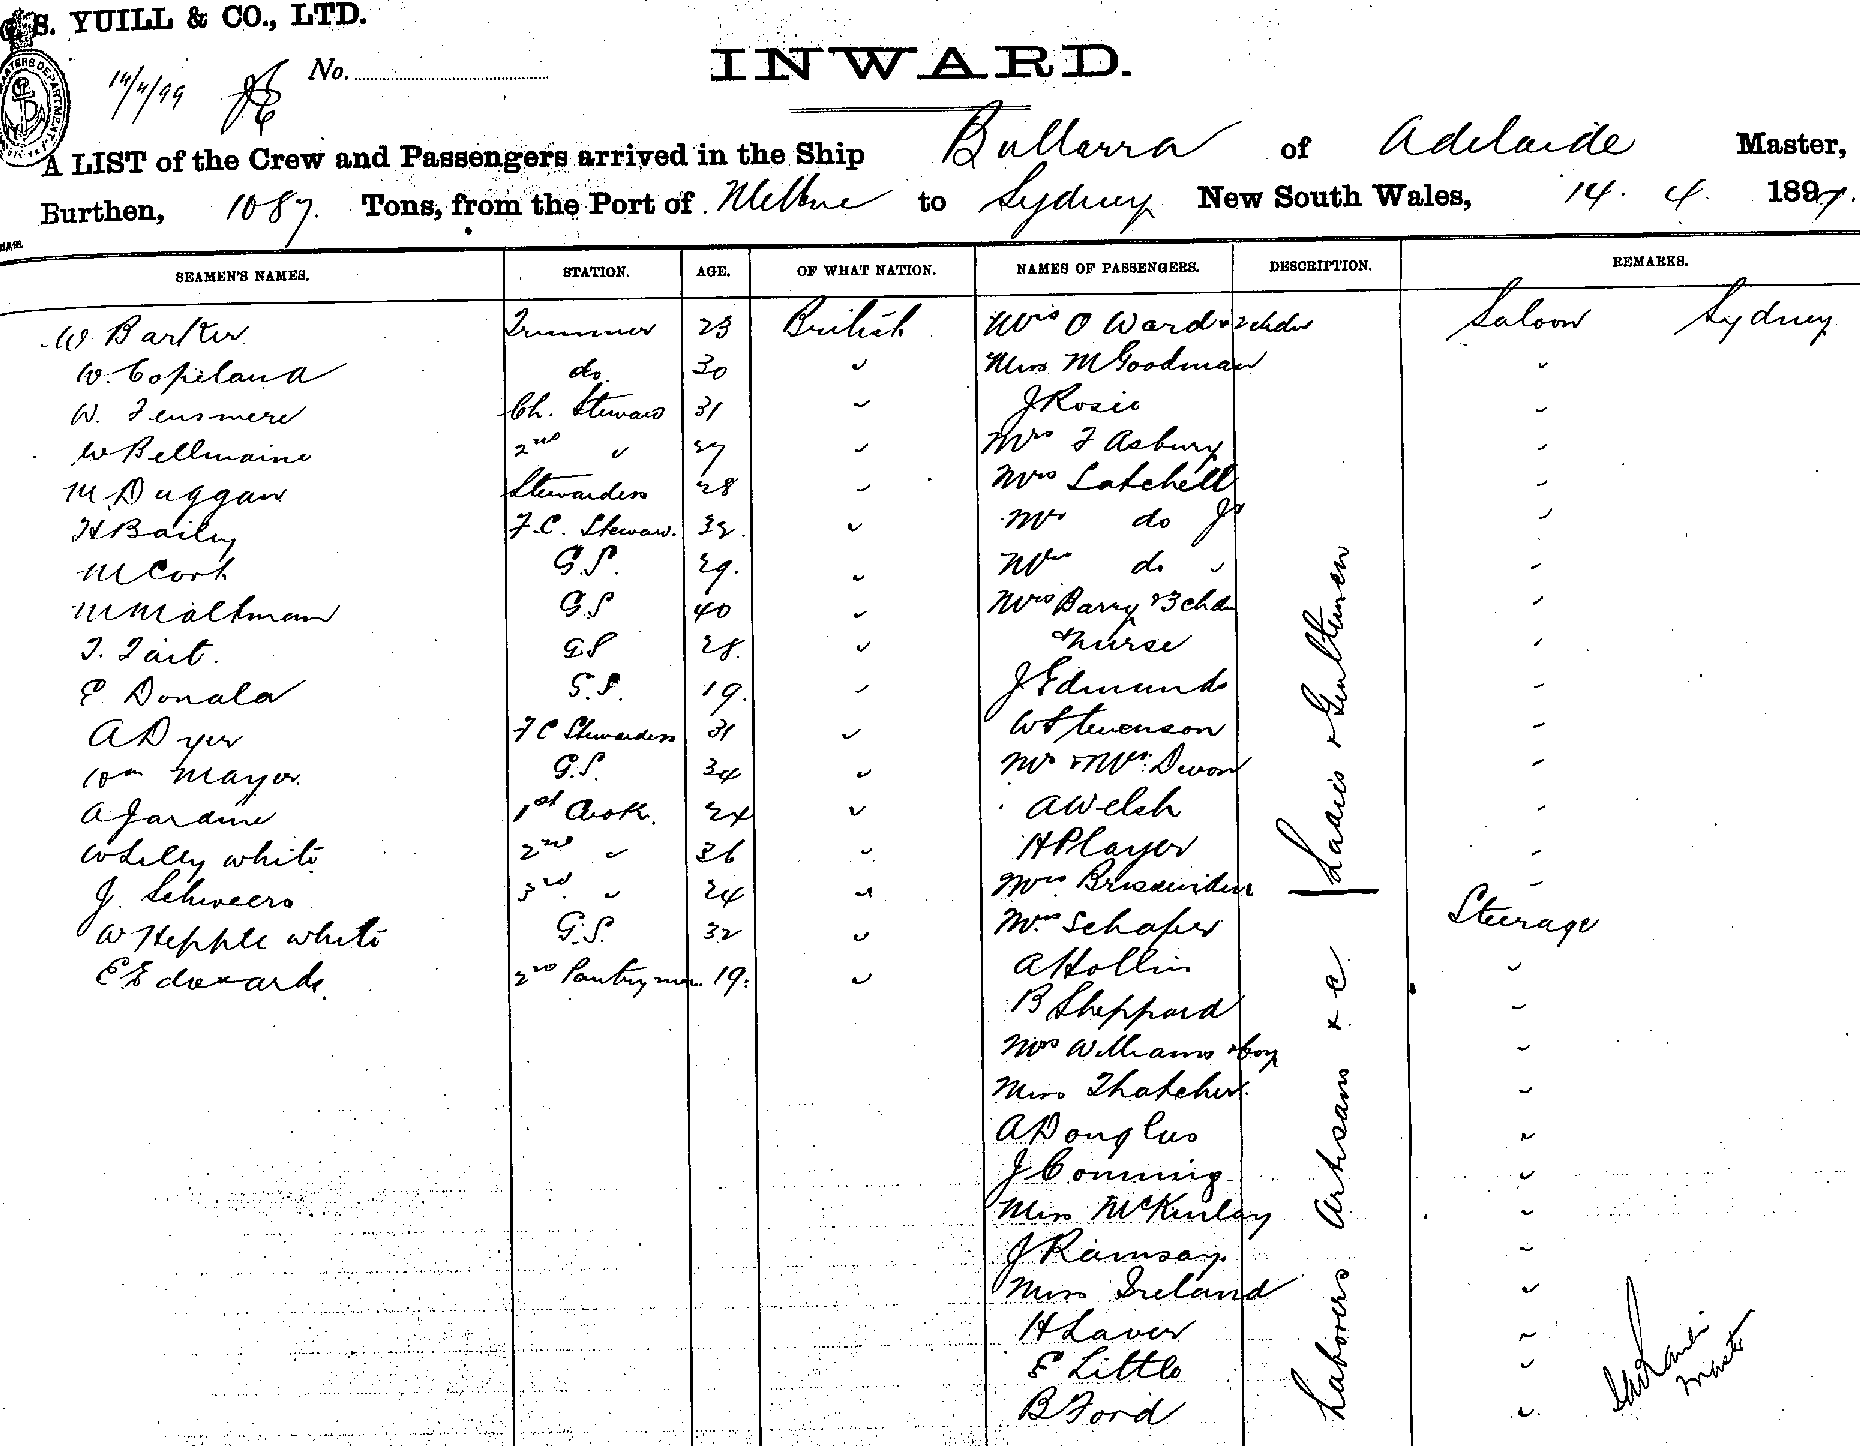 S. YUILL & CO., LTD.
14/4/99 No.
INWARD.
A LIST of the Crew and Passengers arrived in the Ship Bullarra of Adelaide Master,
Burthen, 1087. Tons, from the Port of Melbne to Sydney New South Wales, 14. 4. 189
SEAMEN'S NAMES. STATION. AGE. OF WHAT NATION. NAMES OF PASSENGERS. DESCRIPTION. REMARKS.
W Barker Trimmer 23 British Mrs O Ward & 2 chdn Saloon Sydney
W. Copeland do. 30 " Miss M Goodman "
W. Tensmere Ch. Steward 31 " J Rosie "
W Bellmaine 2nd " 27 " Mrs F Asbury "
M Duggan Stewardess 28 " Mrs Satchell "
H Baily F.C. Steward. 32. " Mr do Jr "
M Cork G.S. 29. " Mrs do " "
M Maltman G.S 40 " Mrs Barry & 3 chdn "
T. Tait. G.S 28. " & nurse "
E Donald G.S. 19. " J Edmunds "
A Dyer F C Stewardess 31 " W Stevenson "
Wm Mayor. G.S. 34 " Mr & Mrs Devon "
A Jardine 1st Cook. 24 " A Welsh "
W Lilly white 2nd " 36 " H Player "
J. Schweers 3rd. " 24 " Mrs "
W Hepple white G.S. 32 " Mrs Schafer Steerage
E Edwards. 2nd Pantryman 19. " A Hollin "
B Sheppard "
Mrs Williams & boy "
Miss Thatcher. "
A Douglas "
J Conning "
Miss McKinlay "
J Ramsay "
Miss Ireland "
H Laver "
E Little "
B Ford "
Ladies & Gentlemen
Laborers Artisans & c
Master